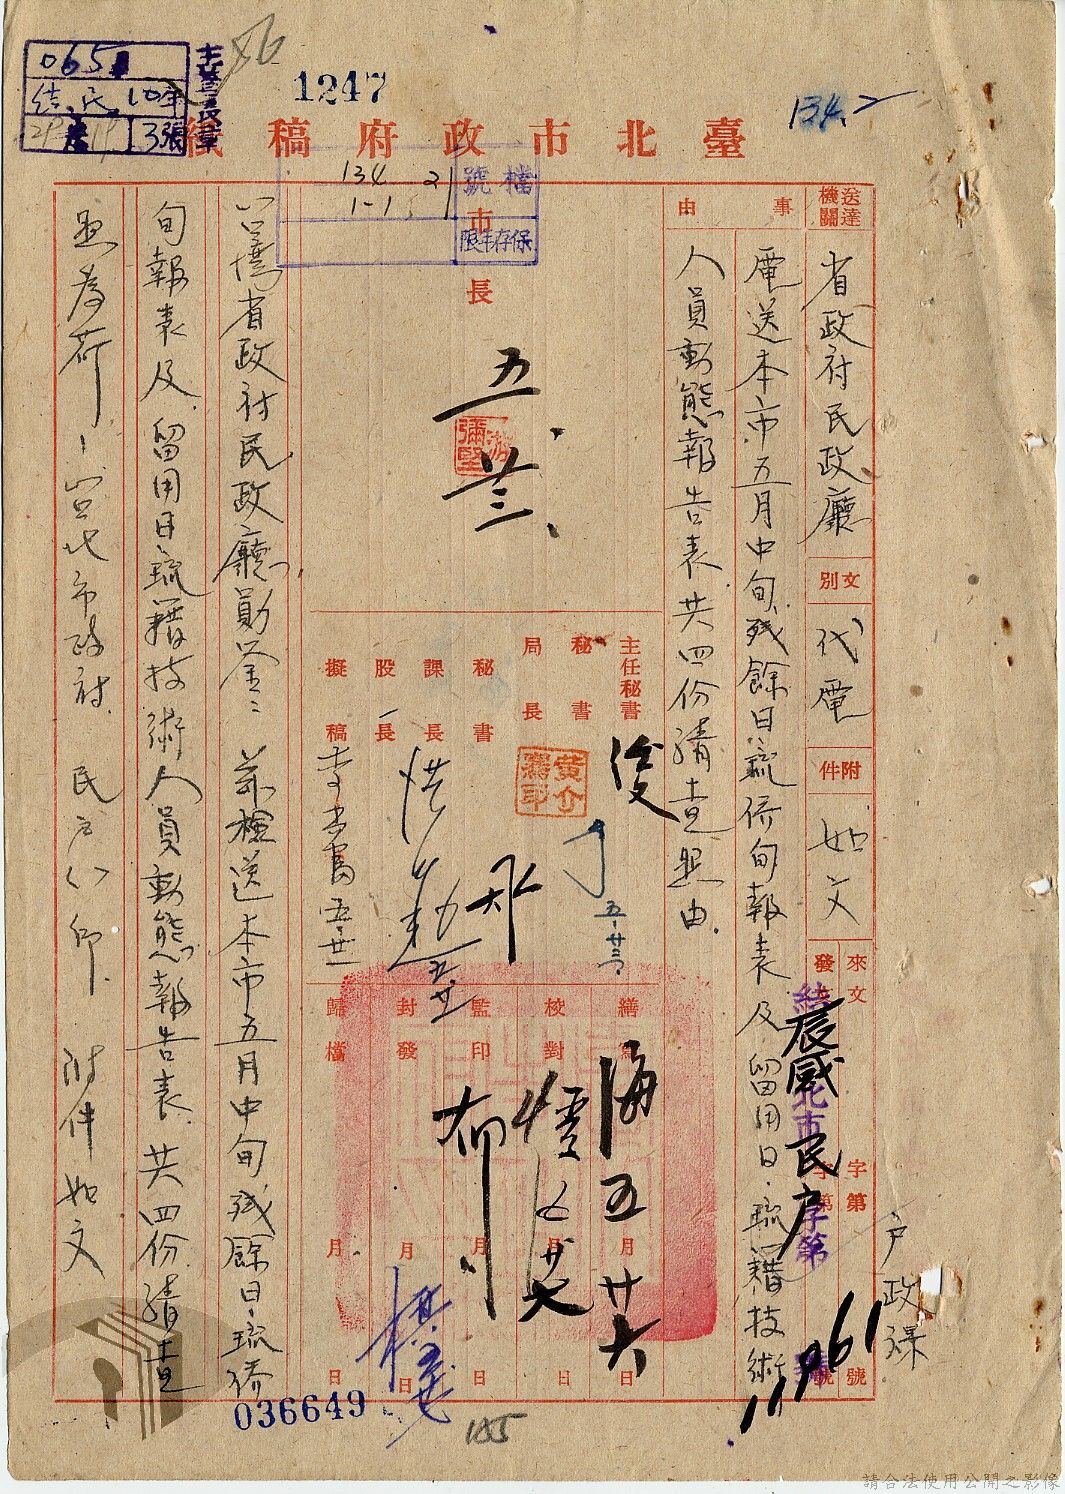 065
結民 10年
3張
1247
134.2
臺北市政府稿紙
檔號
134 21
1-1
保存年限
送達機關
省政府民政廳
文別
代電
附件
如文
來文
字第
號
發文
北市
民戶
字第
11961
號
戶政
事由
電送本市五月中旬殘餘日琉僑旬報表及留用日琉籍技術
人員動態報告表共四份請查照由.
市長
五.廿三
游彌堅
主任秘書
秘書
局長
五.廿三
秘書
課長
股長
擬稿
繕寫
月
日
五廿六
校對
月
日
監印
月
日
封發
月
日
歸檔
月
日
台灣省政府民政廳勛鑒:茲檢送本市五月中旬殘餘日琉僑
旬報表及留用日琉籍技術人員動態報告表共四份請查
照為荷 台北市政府.民戶 印.附件如文
036649
185
請合法使用公開之影像